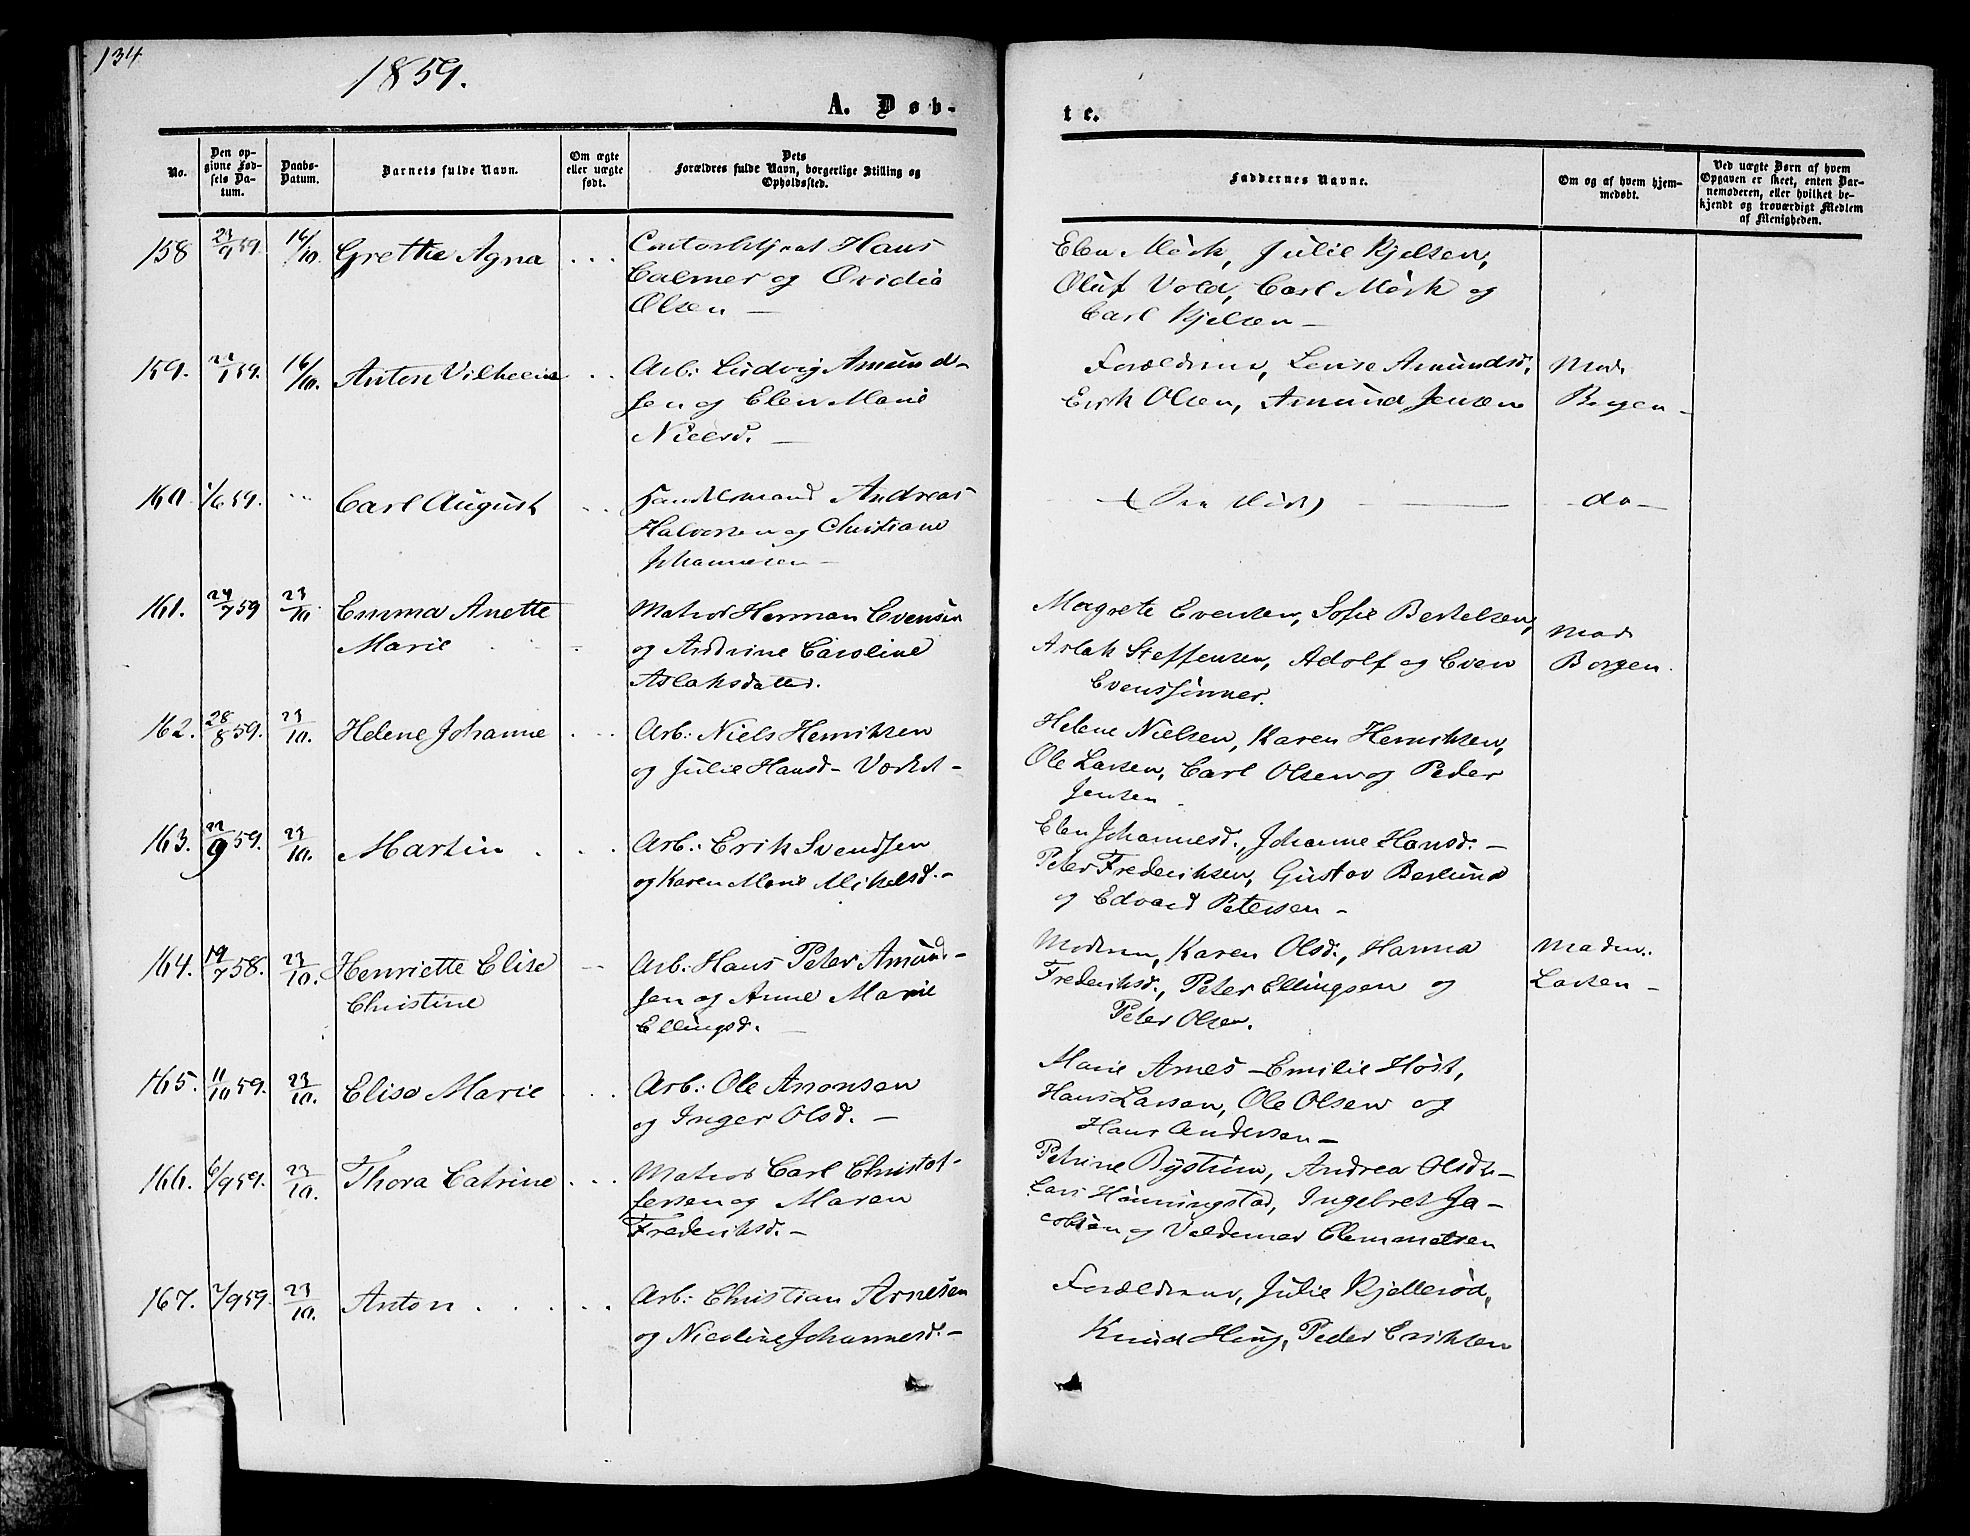 134
1859.
A. Døb-
te.
No.
Den op-
givne Fød-
sels Da-
tum.
Daabs-
Datum.
Barnets fulde Navn.
Om ægte
eller uægte
født.
Dets
Forældres fulde Navn, borgerlige Stilling og
Opholdssted.
Faddernes Navne.
Om og af hvem hjem-
medøbt.
Ved uægte Børn af hvem
Opgaven er skeet, enten Bar-
nemoderen, eller hvilket be-
kjendt og troværdigt Medlem
af Menigheden.
158 23/9 59. 16/10. Grethe Agna Hans
Calmer og Ovidia
Olsen —
Elen Mörk, Julie Kjelsen,
Oluf Vold, Carl Mörk og
Carl Kjelsen —
159. 59. 16/10. Anton Vilhelm Arb: Ludvig Amund-
sen og Elen Marie
Nielsd. —
Forældrene, Louise Amundsd,
Erik Olsen, Amund Jensen
Mad.
Borgen —
160 1/6 59. Carl August Handelsmand Andreas
Halvorsen og Christiane
Johannesen —
do —
161. 24/7 59 23/10 Emma Anette
Marie
Matros Herman Evensen
og Andrine Caroline
Aslaksdatter.
Magrete Evensen, Sofie Bertelsen,
Aslak Steffensen, Adolf og Even
Evenssönner.
Mad.
Borgen.
162. 28/8 59. 23/10. Helene Johanne Arb: Niels Henriksen
og Julie Hansd —
Helene Nielsen, Karen Henriksen,
Ole Larsen, Carl Olsen og Peder
Jensen —
163. 22/9 59. 23/10. Martin Arb: Erik Svendsen
og Karen Marie Mikelsd. —
Elen Johannesd., Johanne Hansd. —
Peter Frederiksen, Gustav Berlund
og Edvard Petersen —
164. 19/7 58. 23/10. Henriette Elise
Christine
Arb: Hans Peter Amund-
sen og Anne Marie
Ellingsd. —
Moderen, Karen Olsd., Hanna
Frederiksd., Peter Ellingsen og
Peter Olsen.
Madm.
Larsen —
165. 11/10 59. 23/10. Elise Marie Arb: Ole Aronsen
og Inger Olsd. —
Marie Arnes — Emilie Höst,
Hans Larsen, Ole Olsen og
Hans Andersen —
166. 6/9 59. 23/10. Thora Catrine Matros Carl Christof-
fersen og Maren
Frederiksd. —
Petrine Byström, Andrea Olsdt —
Lars Hönningstad, Ingebret Ja-
cobsen og Valdemar Clemmetsen
167. 2/9 59. 23/10. Anton Arb: Christian Arnesen
og Nicoline Johannesd. —
Forældrene, Julie Kjelleröd,
Knud Haug, Peder Eriksen